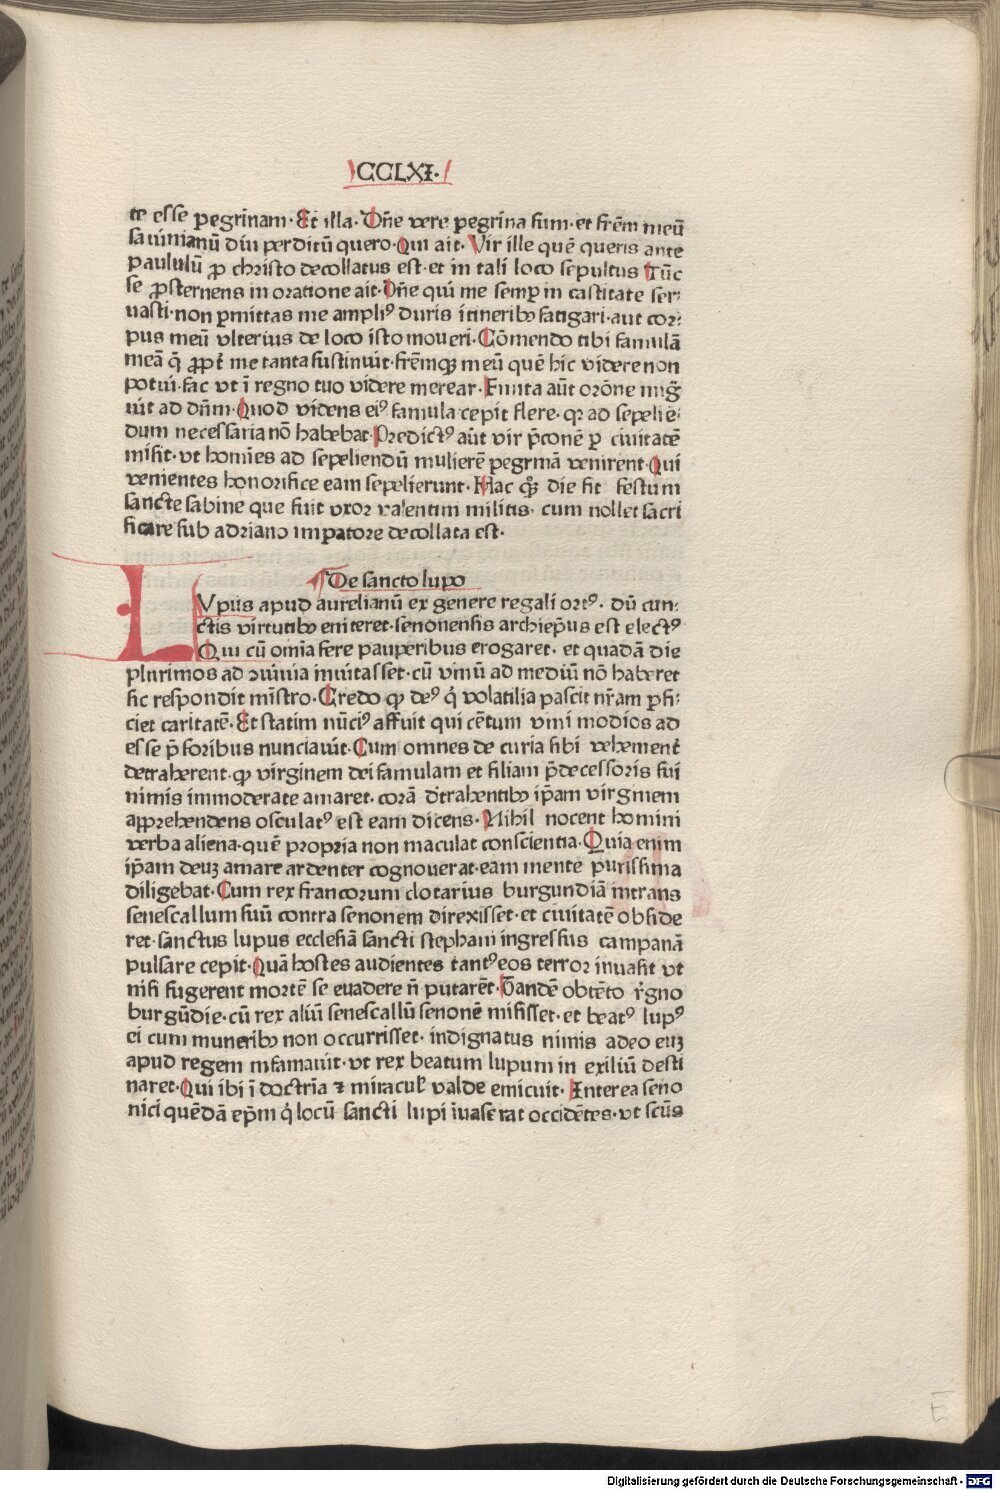 CCLXI·
te esse pegrinam· Et illa· Dn̄e vere pegrina sum· et fr̄em meū
sauinianū diu perditū quero· Qui ait· Vir ille quē queris ante
paululū ꝓ christo decollatus est· et in tali loco sepultus Tūc
se ꝓsternens in oratione ait· Dn̄e qui me semꝑ in castitate ser⸗
uasti· non ꝑmittas me ampliꝰ duris itineribꝫ fatigari· aut cor⸗
pus meū vlterius de loco isto moueri· Cōmendo tibi famulā
meā q̄ ꝓpt̄ me tanta sustinuit· fr̄emqꝫ meū quē hic videre non
potui· fac vt ī regno tuo videre merear· Finita aūt orōne mig̃
uit ad dn̄m· Quod videns eiꝰ famula cepit flere· qꝛ ad sepeliē⸗
dum necessaria nō habebat· Predictꝰ aūt vir p̄conē ꝑ ciuitatē
misit· vt homīes ad sepeliendū mulierē pegrinā venirent· Qui
venientes honorifice eam sepelierunt· Hac qꝫ die fit festum
sancte sabine que fuit vxor valentini militis· cum nollet sacri
ficare sub adriano impatore decollata est·
¶De sancto lupo
LVpus apud aurelianū ex genere regali ortꝰ· dū cun⸗
ctis virtutibꝫ eniteret· senonensis archiep̄us est electꝰ
Qui cū omīa fere pauperibus erogaret· et quadā die
plurimos ad ꝯuiuia inuitasset· cū vinū ad mediū nō haberet
sic respondit mīstro· Credo qꝫ deꝰ q̇ volatilia pascit nr̄am ꝑfi⸗
ciet caritatē· Et statim nūciꝰ affuit qui cētum vini modios ad
esse p̄ foribus nunciauit· Cum omnes de curia sibi vehement̄
detraherent· qꝫ virginem dei famulam et filiam p̄decessoris sui
nimis immoderate amaret· corā dt̄rahentibꝫ ip̄am virginem
apprehendens osculatꝰ est eam dicens· Nihil nocent homini
verba aliena· quē propria non maculat conscientia· Quia enim
ip̄am deuꝫ amare ardenter cognouerat· eam mente purissima
diligebat· Cum rex francorum clotarius burgundiā intrans
senescallum suū contra senonem direxisset· et ciuitatē obside
ret· sanctus lupus ecclesiā sancti stephani ingressus campanā
pulsare cepit· Quā hostes audientes tantꝰ eos terror inuasit vt
nisi fugerent mortē se euadere n̄ putarēt· Tandē obtēto r̄gno
burgūdie· cū rex aliū senescallū senonē misisset· et beatꝰ lupꝰ
ei cum muneribꝫ non occurrisset· indignatus nimis adeo euꝫ
apud regem infamauit· vt rex beatum lupum in exiliū desti
naret· Qui ibi ī doctrīa ⁊ miracul̄ valde emicuit· Interea seno
nici quēdā ep̄m q̇ locū sancti lupi īuaserat occidētes· vt scūs
Digitalisierung gefördert durch die Deutsche Forschungsgemeinschaft · DFG